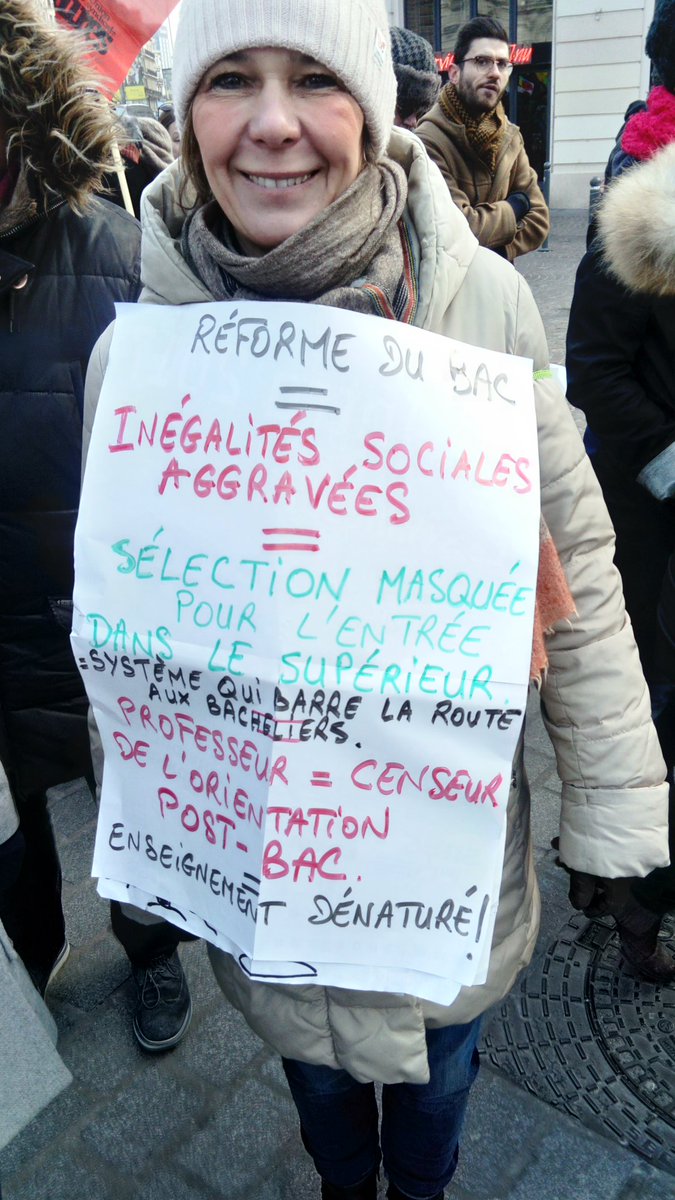 RÉFORME DU BAC
=
INÉGALITÉS SOCIALES
AGGRAVÉES
=
SÉLECTION MASQUÉE
POUR L'ENTRÉE
DANS LE SUPÉRIEUR.
= SYSTÈME QUI BARRE LA ROUTE
AUX BACHELIERS.
=
PROFESSEUR = CENSEUR
DE L'ORIENTATION
POST-BAC.
=
ENSEIGNEMENT DÉNATURÉ!